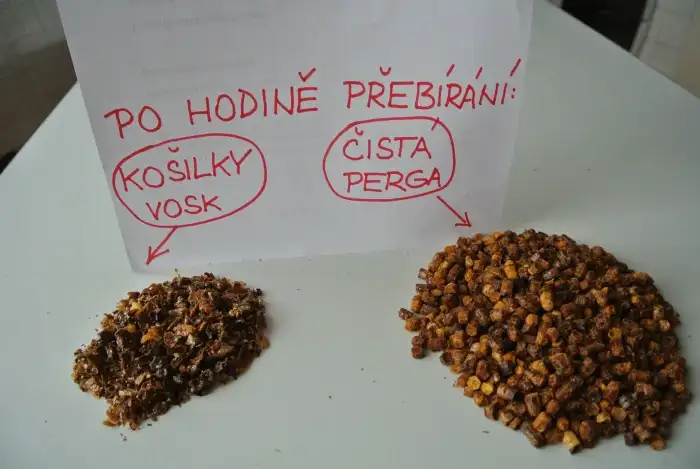 PO HODINĚ PŘEBÍRÁNÍ:
KOŠILKY
VOSK
ČISTÁ
PERGA